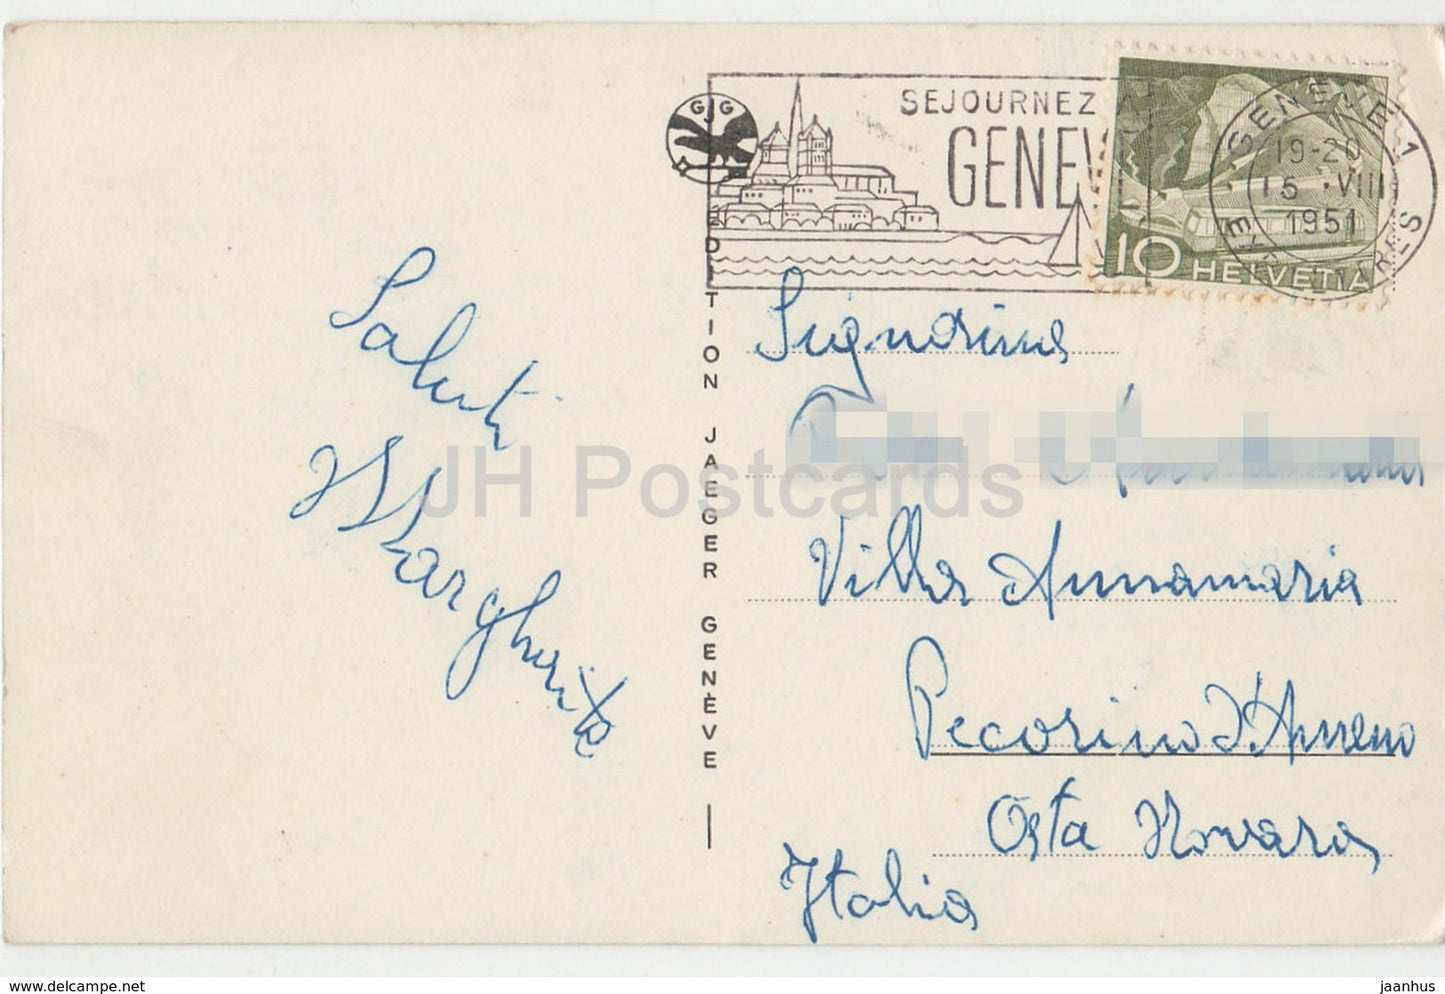 GJG
SEJOURNEZ
GENEV
GENÈVE 1
19-20
15 VIII
1951
10 HELVETIA
ÉDITION JAEGER GENÈVE
Saluti
Margherita
Signorina
Villa Annamaria
Pecorino d'Ameno
Orta Novara
Italia
JH Postcards
www.delcampe.net
jaanhus